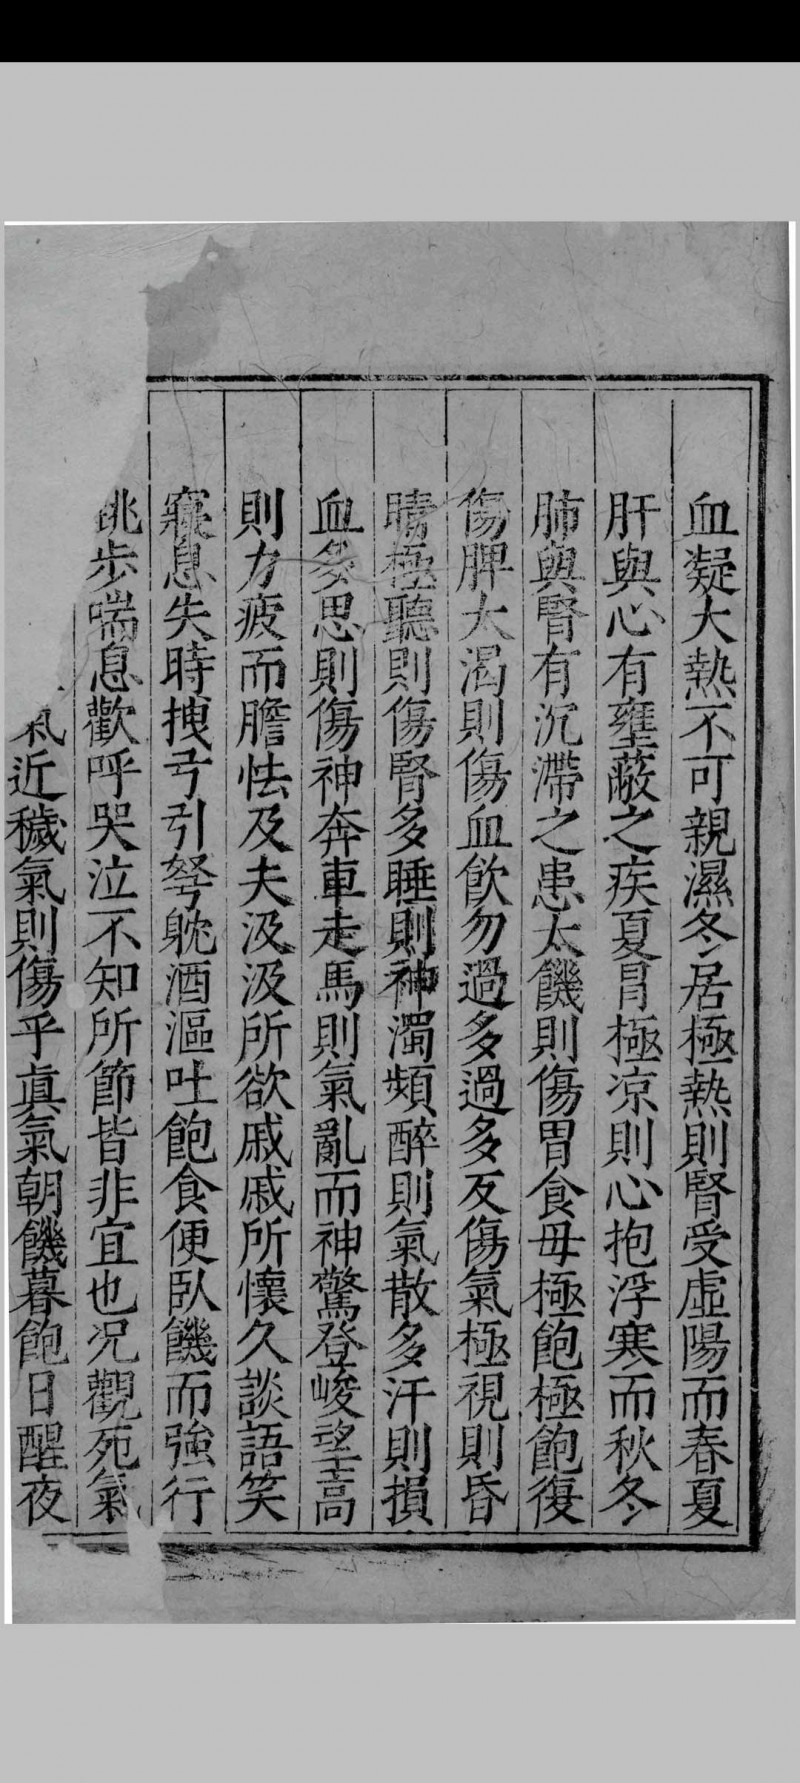 血凝大熱不可親濕冬居極熱則腎受虛陽而春夏
肝與心有壅蔽之疾夏冐極凉則心抱浮寒而秋冬
肺與腎有沉滯之患太饑則傷胃食毋極飽極飽復
傷脾太渴則傷血飲勿過多過多反傷氣極視則昏
睛極聽則傷腎多睡則神濁頻醉則氣散多汗則損
血多思則傷神奔車走馬則氣亂而神驚登峻望高
則力疲而膽怯及夫汲汲所欲戚戚所懷久談語笑
寢息失時拽弓引弩躭酒漚吐飽食便臥饑而強行
跳步喘息歡呼哭泣不知所節皆非宜也况觀死氣
氣近穢氣則傷乎眞氣朝饑暮飽日醒夜